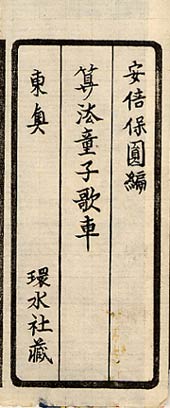 安倍保圓編
算法童子歌車
東奥 環水社藏